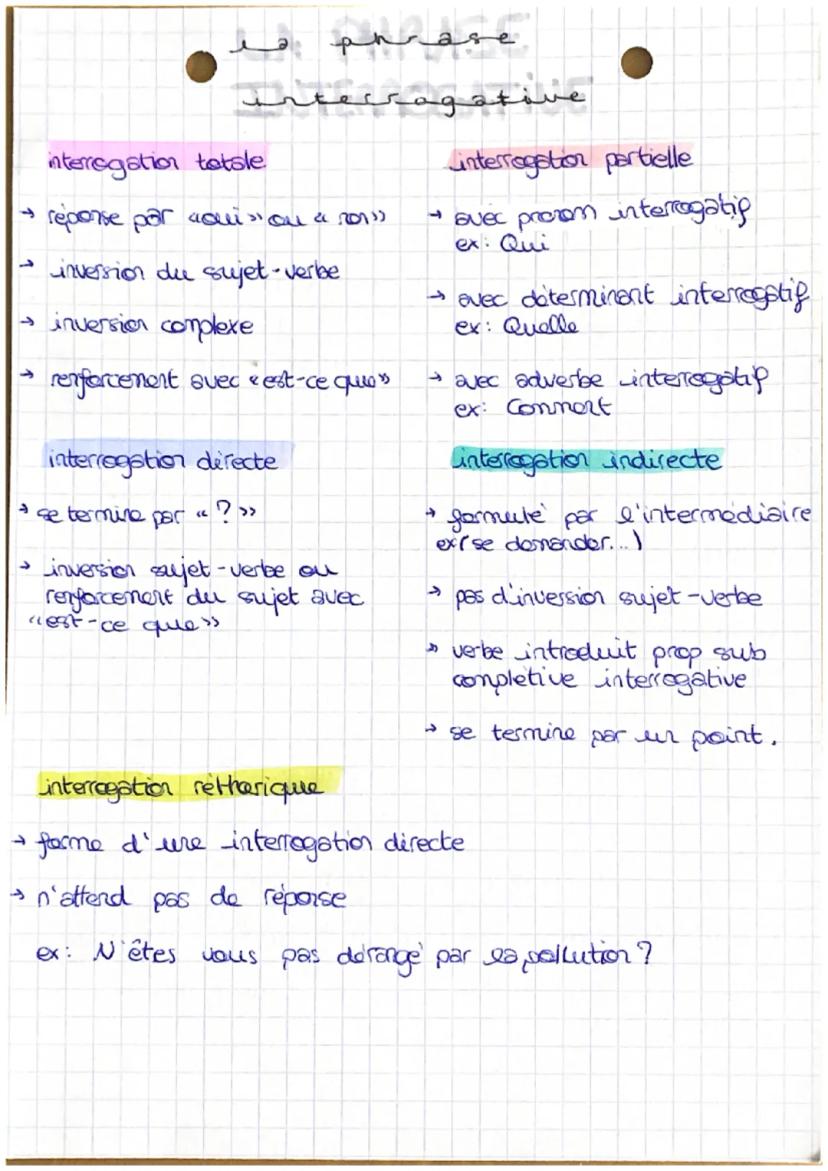 la phrase
interrogative
interrogation totale
→ réponse par «oui» ou «non»
→ inversion du sujet-verbe
→ inversion complexe
→ renforcement avec «est-ce que»
interrogation partielle
→ avec pronom interrogatif
ex: Qui
→ avec déterminent interrogatif
ex: Quelle
→ avec adverbe interrogatif
ex: Comment
interrogation directe
→ se termine par «?»
→ inversion sujet-verbe ou
renforcement du sujet avec
«est-ce que»
interrogation indirecte
→ formulé par l'intermédiaire
ex(se demander...)
→ pas d'inversion sujet-verbe
→ verbe introduit prop sub
complétive interrogative
→ se termine par un point.
interrogation réthorique
→ forme d'une interrogation directe
→ n'attend pas de réponse
ex: N'êtes vous pas dérangé par la pollution?